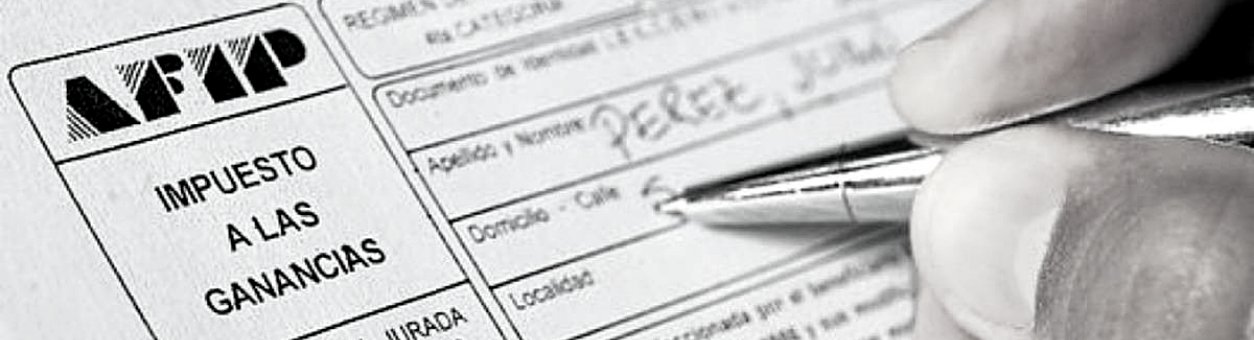 AFIP
IMPUESTO
A LAS
GANANCIAS
JURADA
REGIMEN
4ta CATEGORIA
Documento de Identidad
Apellido y Nombre PEREZ, JUAN
Domicilio - Calle S
Localidad
por el beneficiario
y sus